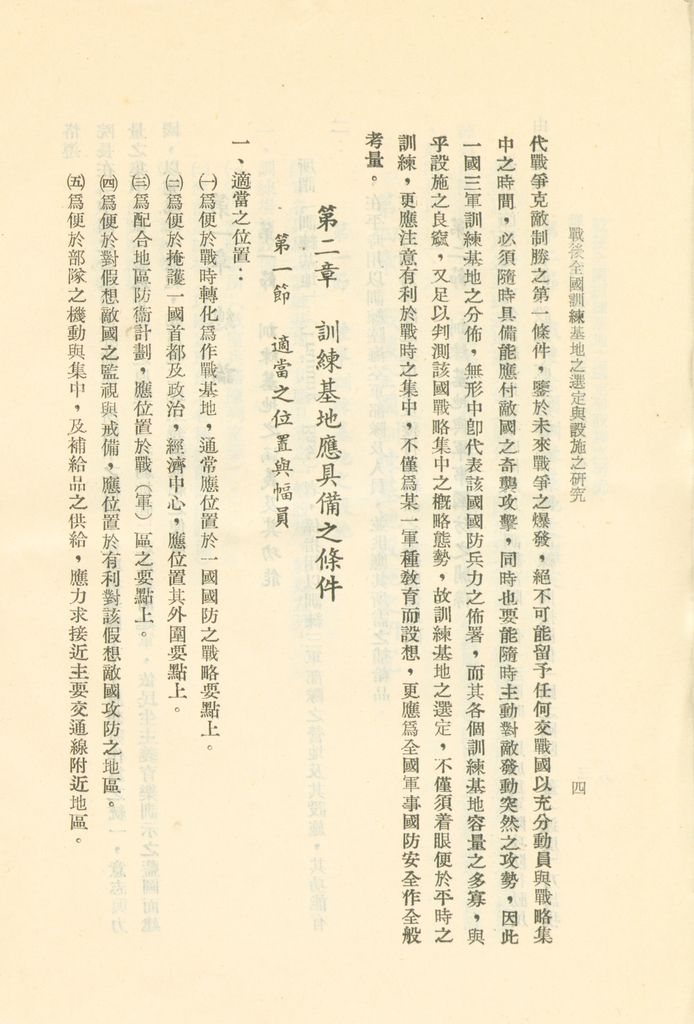 戰後全國訓練基地之選定與設施之研究
四
代戰爭克敵制勝之第一條件，鑒於未來戰爭之爆發，絕不可能留予任何交戰國以充分動員與戰略集
中之時間，必須隨時具備能應付敵國之奇襲攻擊，同時也要能隨時主動對敵發動突然之攻勢，因此
一國三軍訓練基地之分佈，無形中卽代表該國國防兵力之佈署，而其各個訓練基地容量之多寡，與
乎設施之良窳，又足以判測該國戰略集中之概略態勢，故訓練基地之選定，不僅須着眼便於平時之
訓練，更應注意有利於戰時之集中，不僅爲某一軍種敎育而設想，更應爲全國軍事國防安全作全般
考量。
第二章　訓練基地應具備之條件
第一節　適當之位置與幅員
一、適當之位置：
㈠爲便於戰時轉化爲作戰基地，通常應位置於一國國防之戰略要點上。
㈡爲便於掩護一國首都及政治，經濟中心，應位置其外圍要點上。
㈢爲配合地區防衞計劃，應位置於戰（軍）區之要點上。
㈣爲便於對假想敵國之監視與戒備，應位置於有利對該假想敵國攻防之地區。
㈤爲便於部隊之機動與集中，及補給品之供給，應力求接近主要交通線附近地區。